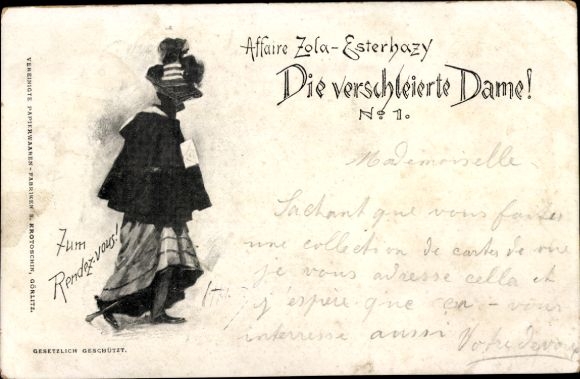 Affaire Zola-Esterhazy
Die verschleierte Dame!
No 1.
Mademoiselle.
Sachant que vous faites
une collection de cartes de vue
je vous adresse cella et
j'espère que ça vous
interresse aussi
Votre dévoué
Zum
Rendez-vous!
VEREINIGTE PAPIERWAAREN-FABRIKEN S. KROTOSCHIN, GÖRLITZ.
GESETZLICH GESCHÜTZT.